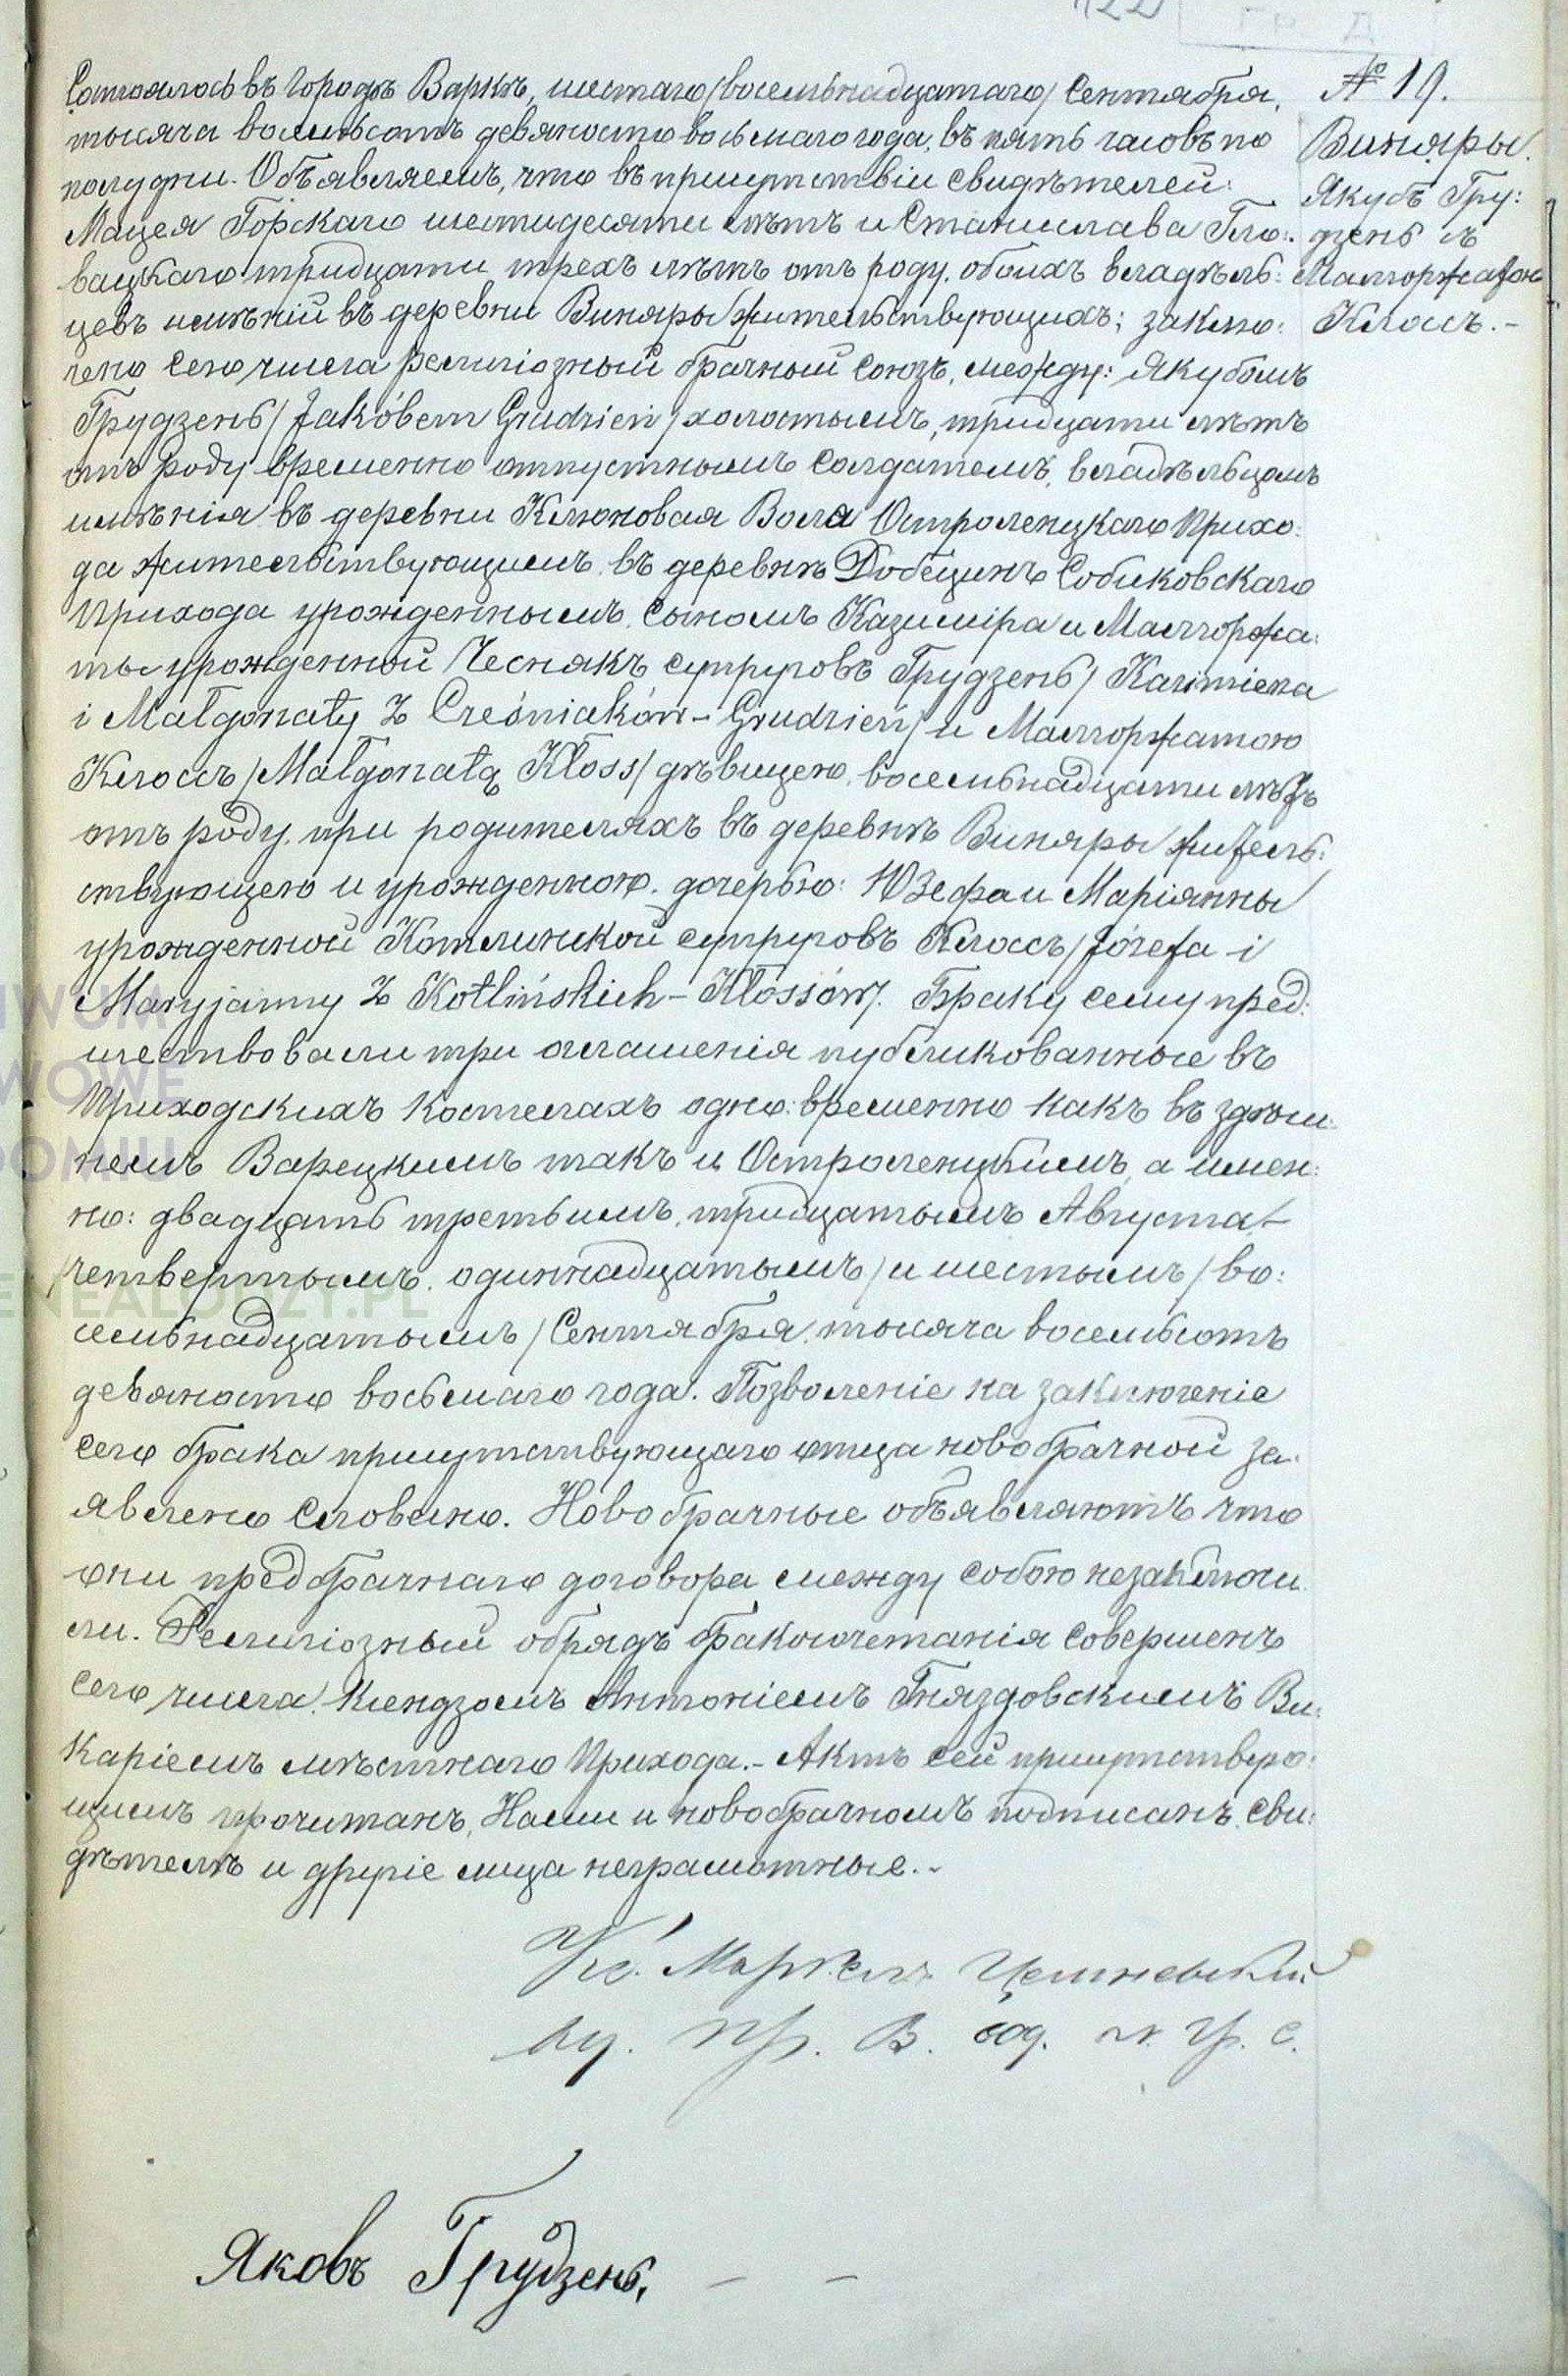 122
№ 19.
Виняры.
Якубъ Гру:
дзень съ
Малгоржатою
Клоссъ.-
Состоялось въ Городѣ Варкѣ, шестаго /восемьнадцатаго/ Сентября,
тысяча восемьсотъ девяносто восьмаго года, въ пять часовъ по
полудни. Объявляемъ, что въ присутствіи свидѣтелей:
Мацея Горскаго шестидесяти лѣтъ и Станислава Гло:
вацкаго тридцати трехъ лѣтъ отъ роду, обоихъ владѣль:
цевъ имѣній въ деревни Виняры жительствующихъ; заклю:
чено сего числа религіозный брачный союзъ, между: Якубомъ
Грудзень /Jakóbem Grudzień/ холостымъ, тридцати лѣтъ
отъ роду временно отпустнымъ солдатемъ, владѣльцемъ
имѣнія въ деревни Клоновая Воля Остроленцкаго Прихо:
да жительствующимъ, въ деревнѣ Добецинѣ Собиковскаго
Прихода урожденнымъ, сыномъ Казимира и Малгоржа:
ты урожденной Чеснякъ супруговъ Грудзень / Kazimierza
i Małgorzaty z Cześniaków - Grudzień/ и Малгоржатою
Клоссъ /Małgorzatą Kłoss/ дѣвицею, восемьнадцати лѣтъ
отъ роду, при родителяхъ въ деревнѣ Виняры житель:
ствующею и урожденною, дочерью: Юзефа и Маріянны
урожденной Котлинской супруговъ Клоссъ /Józefa i
Maryjanny z Kotlińskich - Kłossów/. Браку сему пред:
шествовали три оглашенія публикованные въ
Приходскихъ Костелахъ одно:временно какъ въ здѣш:
немъ Варецкимъ такъ и Остроленцкимъ, а имен:
но: двадцать третьимъ, тридцатымъ Августа /
/четвертымъ, одиннадцатымъ/ и шестымъ /во:
семьнадцатымъ/ Сентября, тысяча восемьсотъ
девяносто восьмаго года. Позволеніе на заключеніе
сего брака присутствующаго отца новобрачной за:
явлено словесно. Новобрачные объявляютъ что
они предбрачнаго договора между собою незаключи
ли. Религіозный обрядъ бракосочетанія совершенъ
сего числа, Ксендзомъ Антоніемъ Гняздовскимъ Ви:
каріемъ мѣстнаго Прихода.- Актъ сей присутствую:
щимъ прочитанъ, Нами и новобрачномъ подписанъ, сви:
дѣтелѣ и другіе лица неграмотные.-
Кс. Маркелъ Цешневскій
Пр. В. сод. Гр. С.
Яковъ Грудзень,
GENEALODZY.PL